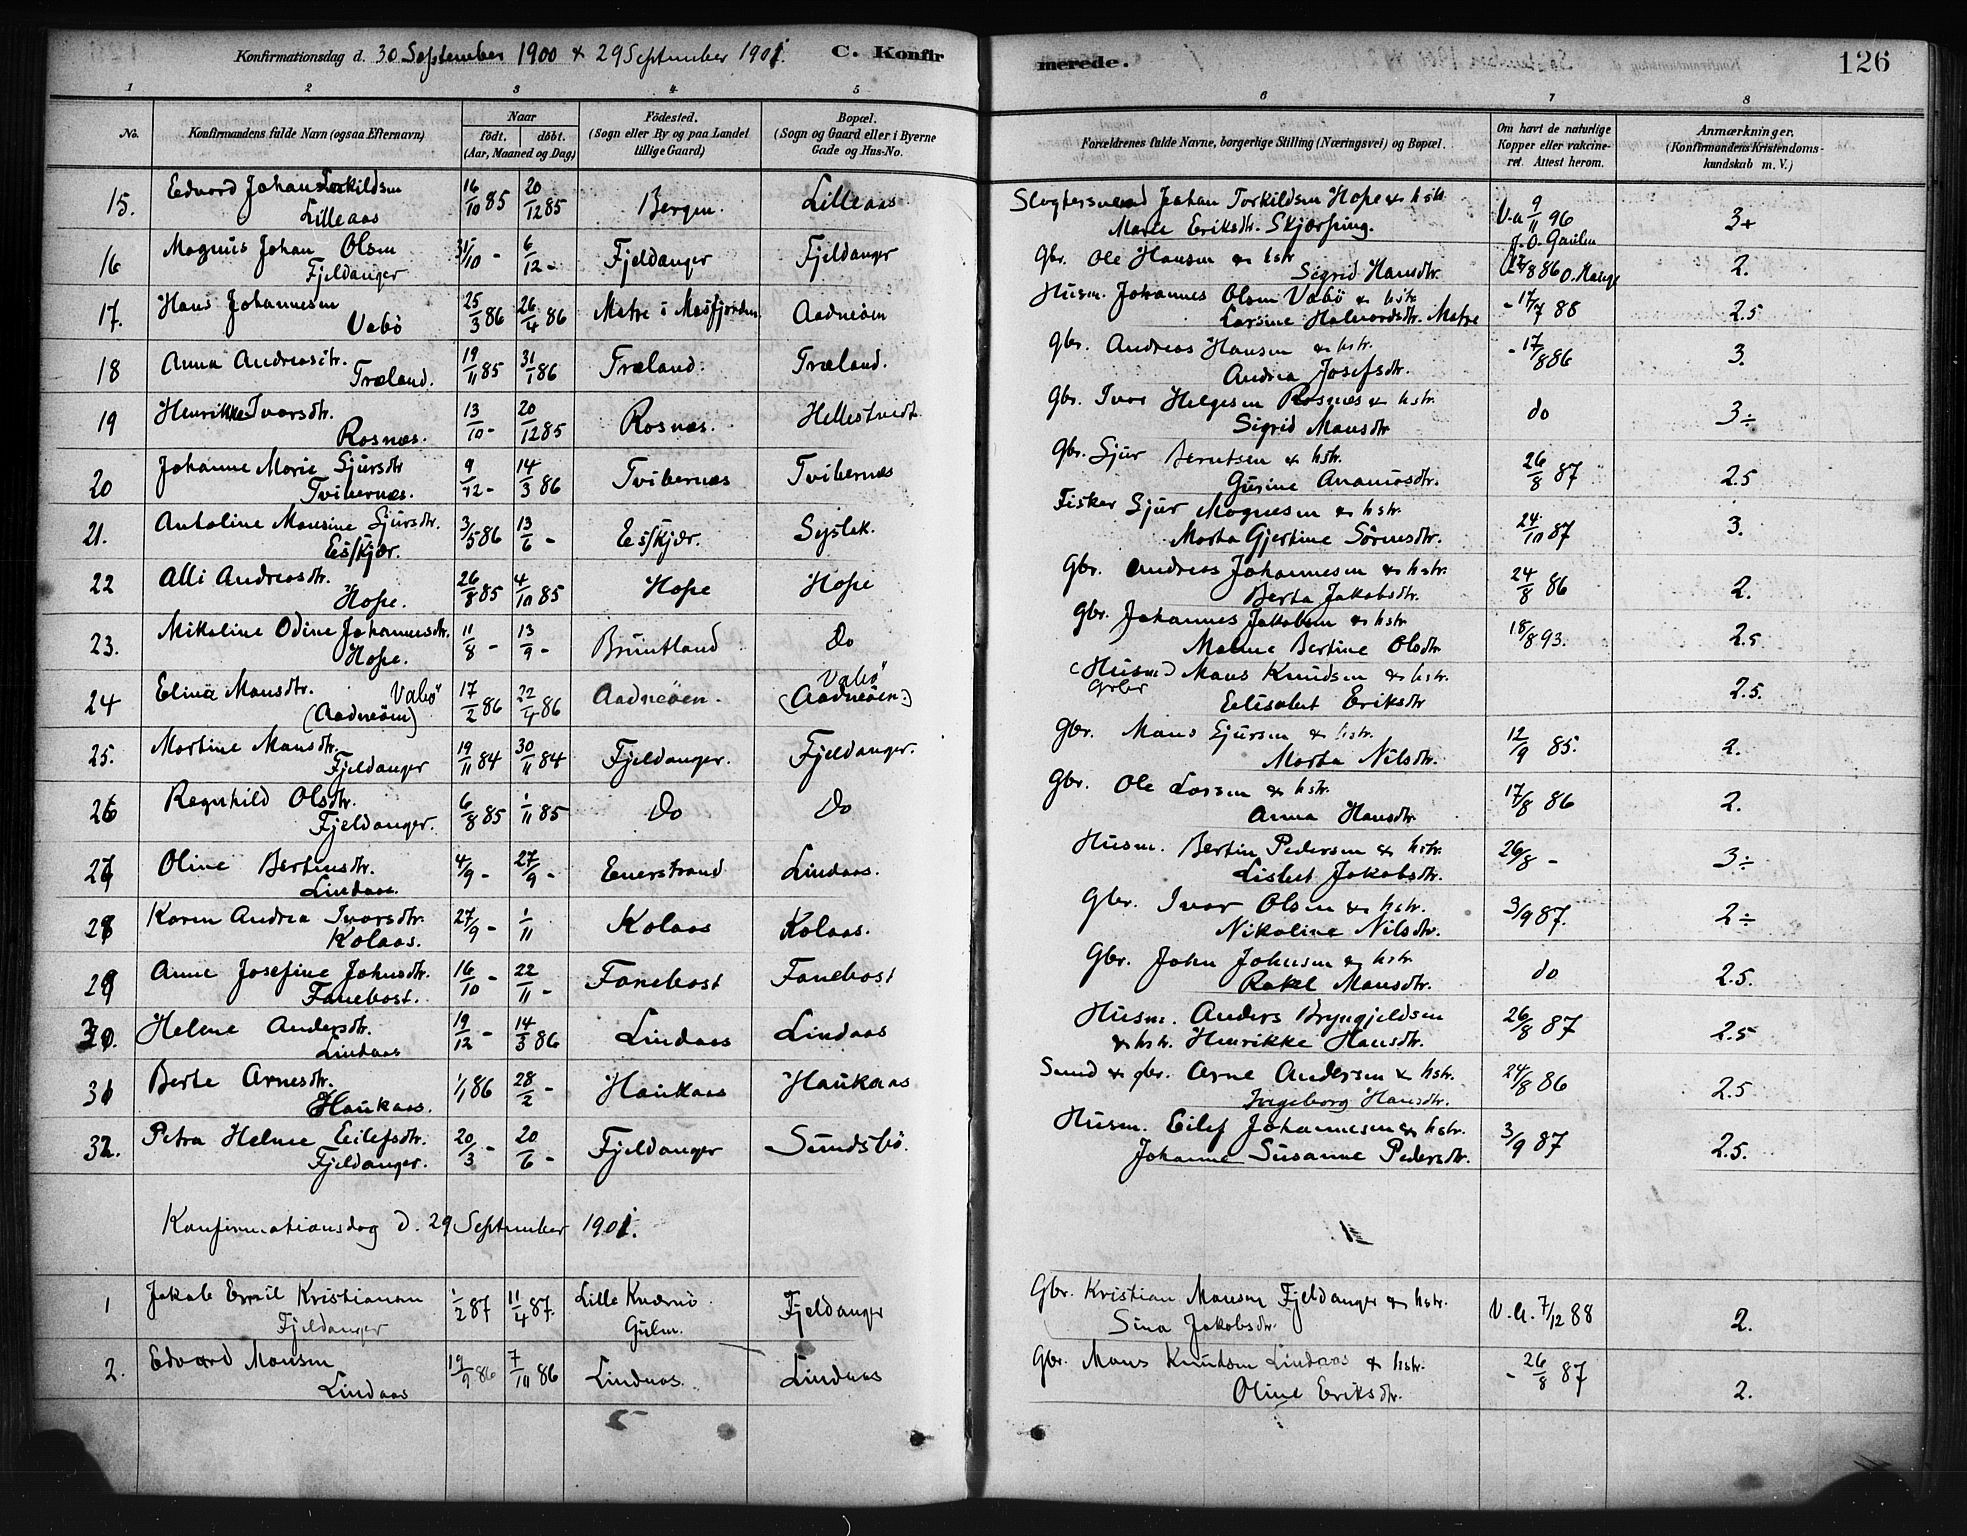 Konfirmationsdag d. 30 September 1900 & 29 September 1901. C. Konfirmerede. 126
1 2 3 4 5 5 6 7 8
No. Konfirmandens fulde Navn (ogsaa Efternavn) Naar født. døbt. (Aar, Maaned og Dag) Fødested. (Sogn eller By og paa Landet tillige Gaard) Bopæl. (Sogn og Gaard eller i Byerne Gade og Hus-No. Forældrenes fulde Navne, borgerlige Stilling (Næringsvei) og Bopæl. Om havt de naturlige Kopper eller vakcineret. Attest herom. Anmærkninger. (Konfirmandens Kristendomskundskab m. V.)
15. Edvard Johan Torkildsen 16/10 85 20/12 85 Bergen. Lilleaas Slagtersvend Johan Torkildsen Hope & hstr. V.a 9/11 96 3+
Lilleaas Marie Eriksdtr. Skjærping. J.O. Gaulen
16 Magnus Johan Olsen 31/10 - 6/12 - Fjeldanger Fjeldanger Gbr. Ole Hansen & hstr. 17/8 86 O. Hauge 2.
Fjeldanger Sigrid Hansdtr.
17. Hans Johannesen 25/3 86 26/4 86 Matre i Masfjorden Aadneøen Husm. Johannes Olsen Vabø & hstr. - 17/7 88 2.5
Vabø Larsine Halvordsdtr. Matre
18 Anna Andreasdtr. 19/11 85 31/1 86 Træland. Træland. Gbr. Andreas Hansen & hstr. - 17/8 86 3.
Træland. Andrea Josefsdtr.
19 Henrikke Ivarsdtr. 13/10 - 20/12 85 Rosnæs. Hellestvedt Gbr. Ivar Helgesen Rosnæs & hstr. do 3÷
Rosnæs. Sigrid Mansdtr
20 Johanne Marie Sjursdtr 9/12 - 14/3 86 Tvibernæs Tvibernæs Gbr. Sjur Berntsen & hstr. 26/8 87 2.5
Tvibernæs. Gurine Ananiasdtr.
21. Antoline Monsine Sjursdtr. 3/5 86 13/6 - Eesskjær. Sejslek. Fisker Sjur Mognesen & hstr. 24/10 87 3.
Eesskjær. Marta Gjertine Sørensdtr.
22 Alli Andreasdtr. 26/8 85 4/10 85 Hope Hope Gbr. Andreas Johannesen & hstr. 24/8 86 2.
Hope. Berta Jakobsdtr.
23. Mikaline Odine Johannesdtr. 11/8 - 13/9 - Bruntland Do Gbr. Johannes Jakobsen & hstr 18/8 93. 2.5
Hope. Malene Bertine Olsdtr
24 Elina Mansdtr. Vabø 17/2 86 22/4 86 Aadneøen. Vabø (Aadneøen.) (Husm) Mans Knudsen & hstr. 2.5.
(Aadneøen) Grbr Eelisabet Eriksdtr
25. Martine Mansdtr. 19/11 84 30/11 84 Fjeldanger. Fjeldanger. Gbr. Mans Sjursen & hstr. 12/9 85. 2.
Fjeldanger Marta Nilsdtr.
26 Regnhild Olsdtr. 6/8 85 1/11 85 Do Do Gbr. Ole Larsen & hstr. 17/8 86 2.
Fjeldanger. Anna Hansdtr
27 Oline Bertinsdtr. 4/9 - 27/9 - Enerstrand Lindaas. Husm. Bertin Pedersen & hstr. 26/8 - 3÷
Lindaas. Lisbet Jakobsdtr.
28 Karen Andrea Ivarsdtr. 27/9 - 1/11 Kolaas Kolaas. Gbr. Ivar Olsen & hstr. 3/9 87. 2÷
Kolaas. Nikoline Nilsdtr.
29 Anne Josefine Johnsdtr. 16/10 - 22/11 - Fanebost Fanebost Gbr. John Johnsen & hstr do 2.5.
Fanebost. Rakel Mansdtr.
30. Helene Andersdtr. 19/12 - 14/3 86 Lindaas Lindaas Husm. Anders Bryngjeldsen 26/8 87 2.5
Lindaas & hstr. Henrikke Hansdtr.
31 Berte Arnesdtr. 1/1 86 28/2 - Haukaas Haukaas Smed & gbr. Arne Andersen & hstr. 24/8 86 2.5
Haukaas. Ingeborg Hansdtr.
32. Petra Helene Eilefsdtr. 20/3 - 20/6 - Fjeldanger Sundsbø. Husm. Eilef Johannesen & hstr. 3/9 87 2.5.
Fjeldanger. Johanne Susanne Pedersdtr.
Konfirmationsdag d. 29 September 1901.
1 Jakob Emil Kristiansen 1/2 87 11/4 87. Lille Kværnø Fjeldanger Gbr. Kristian Mansen Fjeldanger & hstr. V.A. 7/12 88 2.
Fjeldanger Gulen. Sina Jakobsdtr.
2. Edvard Monsen 19/9 86 7/11 86 Lindaas. Lindaas Gbr. Mans Knudsen Lindaas & hstr. - 26/8 87 2.
Lindaas Oline Eriksdtr.